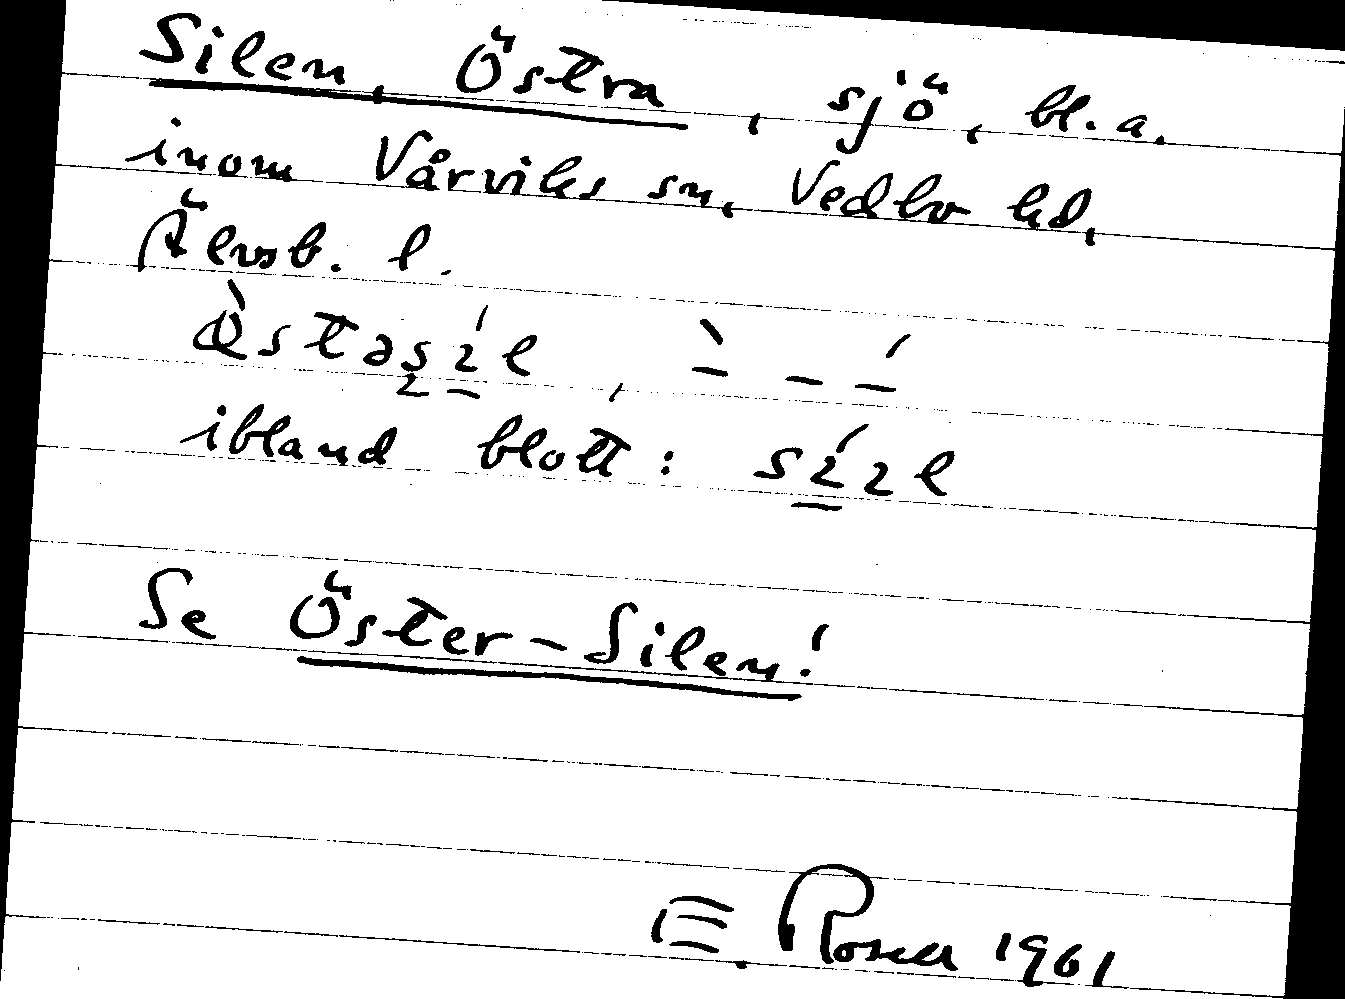 Silen, Östra, sjö, bl. a.
inom Vårviks sn, Vedbo hd,
Älvsb. l.
ibland blott:
Se Öster-Silen!
E. Rosell 1961